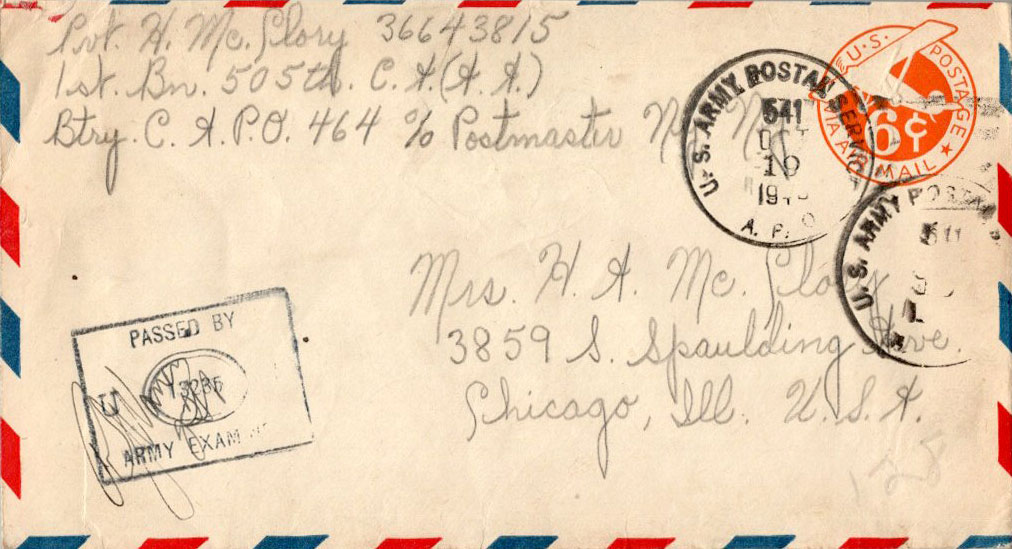 Pvt. H. Mc. Glory 36643815
1st. Bn. 505th. C. A. (A. A.)
Btry. C A.P.O. 464 c/o Postmaster N.Y. N.Y.
U.S. ARMY POSTAL SERVICE
541
19
A. P. O
U.S. POSTAGE
6¢
VIA AIR MAIL
U.S. ARMY POSTAL
Mrs. H. A. Mc. Glory
3859 S. Spaulding Ave.
Chicago, Ill. U. S. A.
PASSED BY
U
ARMY EXAM